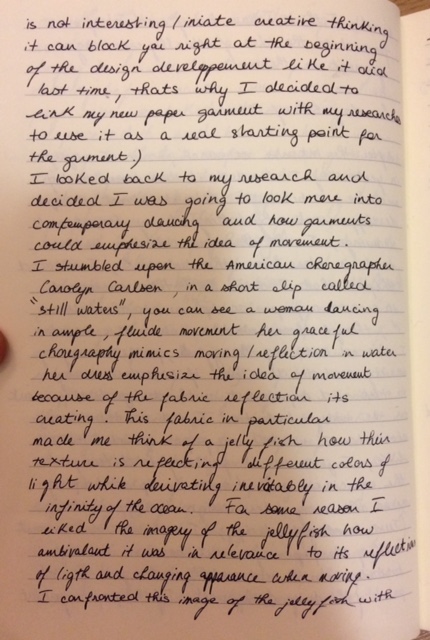 is not interesting/iniate creative thinking
it can block you right at the beginning
of the design developpement like it did
last time, thats why I decided to
link my new paper garment with my research
to use it as a real starting point for
the garment.)
I looked back to my research and
decided I was going to look more into
comtemporary dancing and how garments
could emphesize the idea of movement.
I stumbled upon the American choregrapher
Carolyn Carlsen, in a short clip called
"still waters", you can see a woman dancing
in ample, fluide movment her graceful
choregraphy mimics moving/reflection in water
her dress emphesize the idea of movement
because of the fabric reflection its
creating. This fabric in particular
made me think of a jelly fish how thin
texture is reflecting different colors of
light while derivating inevitably in the
infinity of the ocean. For some reason I
liked the imagery of the jellyfish how
ambivalant it was in relevance to its reflection
of ligth and changing apparance when moving.
I confronted this image of the jellyfish with